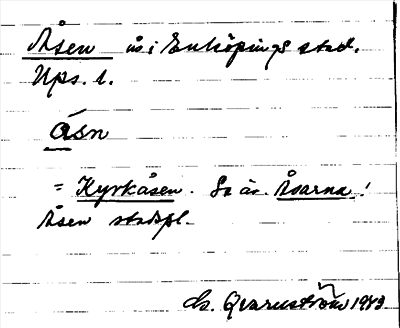 Åsen ås i Enköpings stad.
Ups. l.
åsn
= Kyrkåsen. Se äv. Åsarna!
Åsen stadspl.
Qvarnström 1943